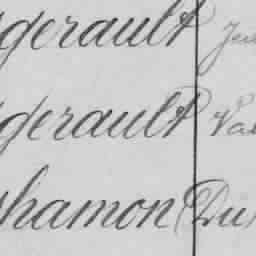 gerault Ju
gerault Va
hamon Du